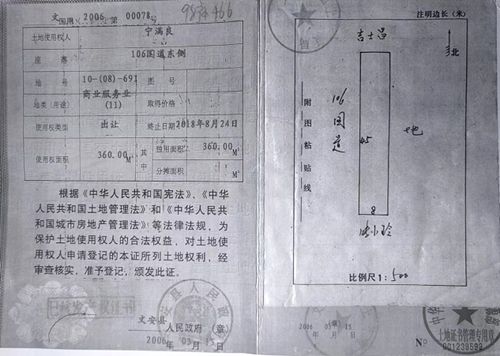 文国用(2006)第00078号
土地使用权人 宁满良
座落 106国道东侧
地号 10-(08)-691 图号
地类(用途) 商业服务业(11) 取得价格
使用权类型 出让 终止日期 2018年8月24日
使用权面积 360.00M² 其中 独用面积 360.00M²
分摊面积 M²
根据《中华人民共和国宪法》、《中华
人民共和国土地管理法》和《中华人民共
和国城市房地产管理法》等法律法规,为
保护土地使用权人的合法权益,对土地使
用权人申请登记的本证所列土地权利,经
审查核实,准予登记,颁发此证。
文安县人民政府(章)
2006年03月15日
注明边长(米)
吉士昌
北
附图粘贴线
106国道
45
地
8
比例尺1:500
2006 03 15
(章)
Nº 001239599
土地证书管理专用章